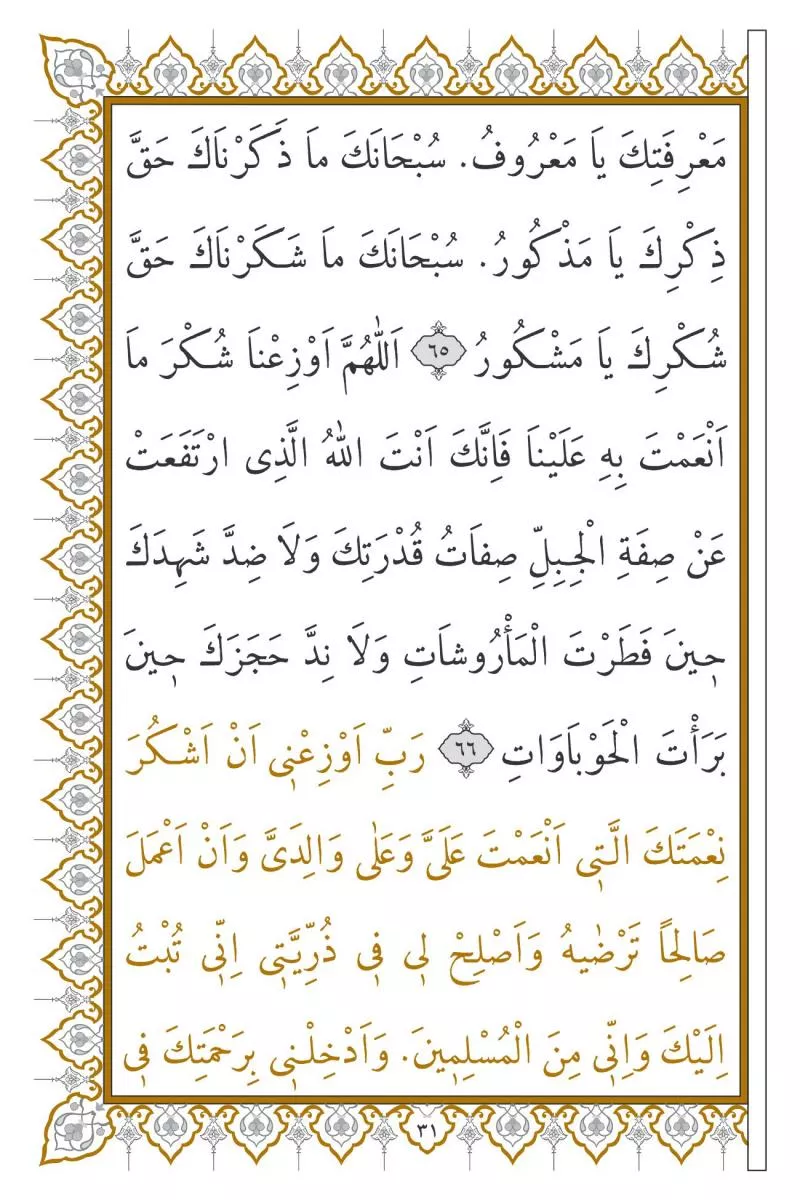 مَعْرِفَتِكَ يَا مَعْرُوفُ. سُبْحَانَكَ مَا ذَكَرْنَاكَ حَقَّ
ذِكْرِكَ يَا مَذْكُورُ. سُبْحَانَكَ مَا شَكَرْنَاكَ حَقَّ
شُكْرِكَ يَا مَشْكُورُ ٦٥ اَللّٰهُمَّ اَوْزِعْنَا شُكْرَ مَا
اَنْعَمْتَ بِهِ عَلَيْنَا فَاِنَّكَ اَنْتَ اللّٰهُ الَّذِى ارْتَفَعَتْ
عَنْ صِفَةِ الْجِبِلِّ صِفَاتُ قُدْرَتِكَ وَلَا ضِدَّ شَهِدَكَ
حِينَ فَطَرْتَ الْمَأْرُوشَاتِ وَلَا نِدَّ حَجَزَكَ حِينَ
بَرَأْتَ الْحَوْبَاوَاتِ ٦٦ رَبِّ اَوْزِعْنِى اَنْ اَشْكُرَ
نِعْمَتَكَ الَّتِى اَنْعَمْتَ عَلَىَّ وَعَلٰى وَالِدَىَّ وَاَنْ اَعْمَلَ
صَالِحًا تَرْضٰيهُ وَاَصْلِحْ لِى فِى ذُرِّيَّتِى اِنِّى تُبْتُ
اِلَيْكَ وَاِنِّى مِنَ الْمُسْلِمِينَ. وَاَدْخِلْنِى بِرَحْمَتِكَ فِى
٣١